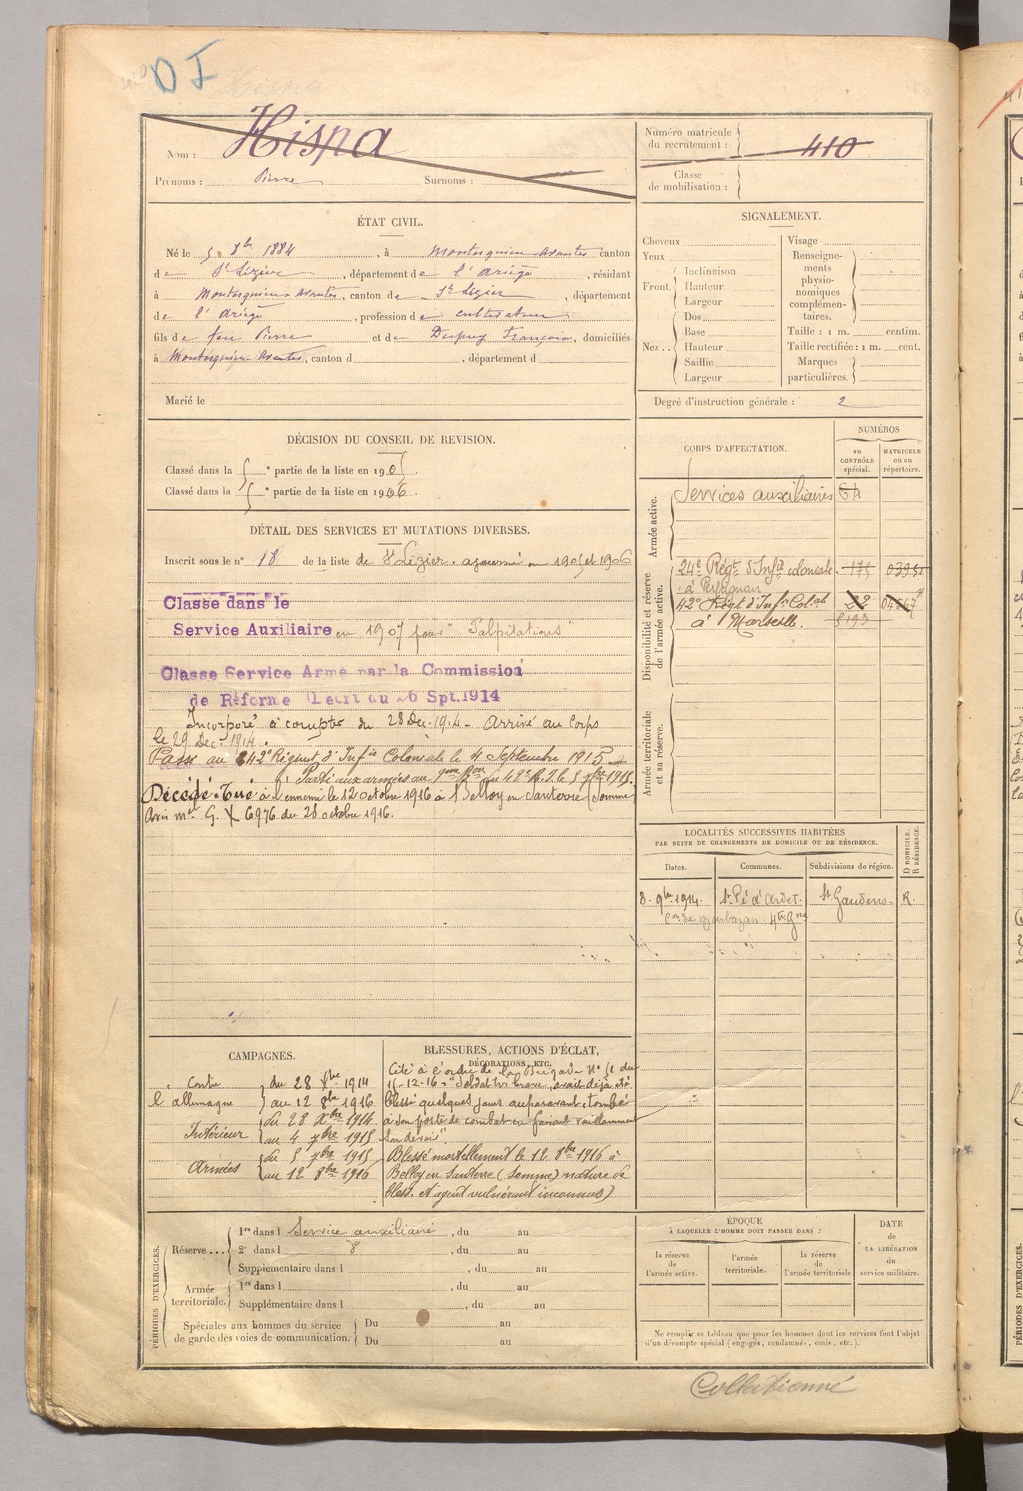 DI
Nom : Hispa
Prénoms : Pierre Surnoms :
Numéro matricule du recrutement : 410
Classe de mobilisation :
ÉTAT CIVIL.
Né le 5 8bre 1884, à Montesquieu Avantès canton
de St Lizier, département de l'Ariège, résidant
à Montesquieu-Avantès, canton de St Lizier, département
de l'Ariège, profession de cultivateur
fils de feu Pierre et de Dupuy Françoise, domiciliés
à Montesquieu Avantès, canton d , département d
Marié le
SIGNALEMENT.
Cheveux
Yeux
Front Inclinaison
Hauteur
Largeur
Nez Dos
Base
Hauteur
Saillie
Largeur
Visage
Renseignements physionomiques complémentaires.
Taille : 1 m. centim.
Taille rectifiée : 1 m. cent.
Marques particulières.
Degré d'instruction générale : 2
DÉCISION DU CONSEIL DE REVISION.
Classé dans la 5 e partie de la liste en 1905
Classé dans la 5 e partie de la liste en 1906.
DÉTAIL DES SERVICES ET MUTATIONS DIVERSES.
Inscrit sous le n° 18 de la liste de St Lizier. ajourné en 1905 et 1906
Classé dans le
Service Auxiliaire en 1907 pour "Palpitations"
Classé Service Armé par la Commission
de Réforme (Décret du 26 Sept. 1914
Incorporé à compter du 28 Dec. 1914 - Arrivé au Corps
le 29 Dec. 1914.
Passé au 42e Régiment d'Infie Coloniale le 4 Septembre 1915
Parti aux armées au
Décédé - Tué à l'ennemi le 12 octobre 1916 à Belloy en Santerre (Somme)
Avis mel G. X 6976 du 28 octobre 1916.
CORPS D'AFFECTATION.
NUMÉROS
au CONTRÔLE spécial.
MATRICULE ou au répertoire.
Armée active.
Services auxiliaires 64
Disponibilité et réserve de l'armée active.
24e Régt d'Infie coloniale 175 03951
à Perpignan
42e Régt d'Infie Colale 22
à Marseille. 5193
Armée territoriale et sa réserve.
LOCALITÉS SUCCESSIVES HABITÉES
PAR SUITE DE CHANGEMENTS DE DOMICILE OU DE RÉSIDENCE.
Dates. Communes. Subdivisions de région. D DOMICILE. R RÉSIDENCE.
8-9bre 1914. St Pé d'Ardet. St Gaudens. R.
CAMPAGNES.
Contre l'allemagne du 28 Xbre 1914
au 12 8bre 1916
Intérieur du 28 Xbre 1914
au 4 7bre 1915
Armées du 5 7bre 1915
au 12 8bre 1916
BLESSURES, ACTIONS D'ÉCLAT,
DÉCORATIONS, ETC.
Cité à l'ordre de la Brigade N° 51 du
11-12-16. "Soldat très brave, avait déjà été
blessé quelques jours auparavant. Tombé
à son poste de combat en faisant vaillamment
son devoir".
Blessé mortellement le 12 8bre 1916 à
Belloy en Santerre (Somme) nature de
bless. et agent vulnérant inconnus)
PÉRIODES D'EXERCICES.
Réserve... 1re dans l Service auxiliaire, du au
2e dans l do, du au
Supplémentaire dans l , du au
Armée territoriale. 1re dans l , du au
Supplémentaire dans l , du au
Spéciales aux hommes du service de garde des voies de communication. Du au
Du au
ÉPOQUE
À LAQUELLE L'HOMME DOIT PASSER DANS :
la réserve de l'armée active.
l'armée territoriale.
la réserve de l'armée territoriale
DATE de LA LIBÉRATION du service militaire.
Ne remplir ce tableau que pour les hommes dont les services font l'objet
d'un décompte spécial (engagés, condamnés, omis, etc.).
Collationné